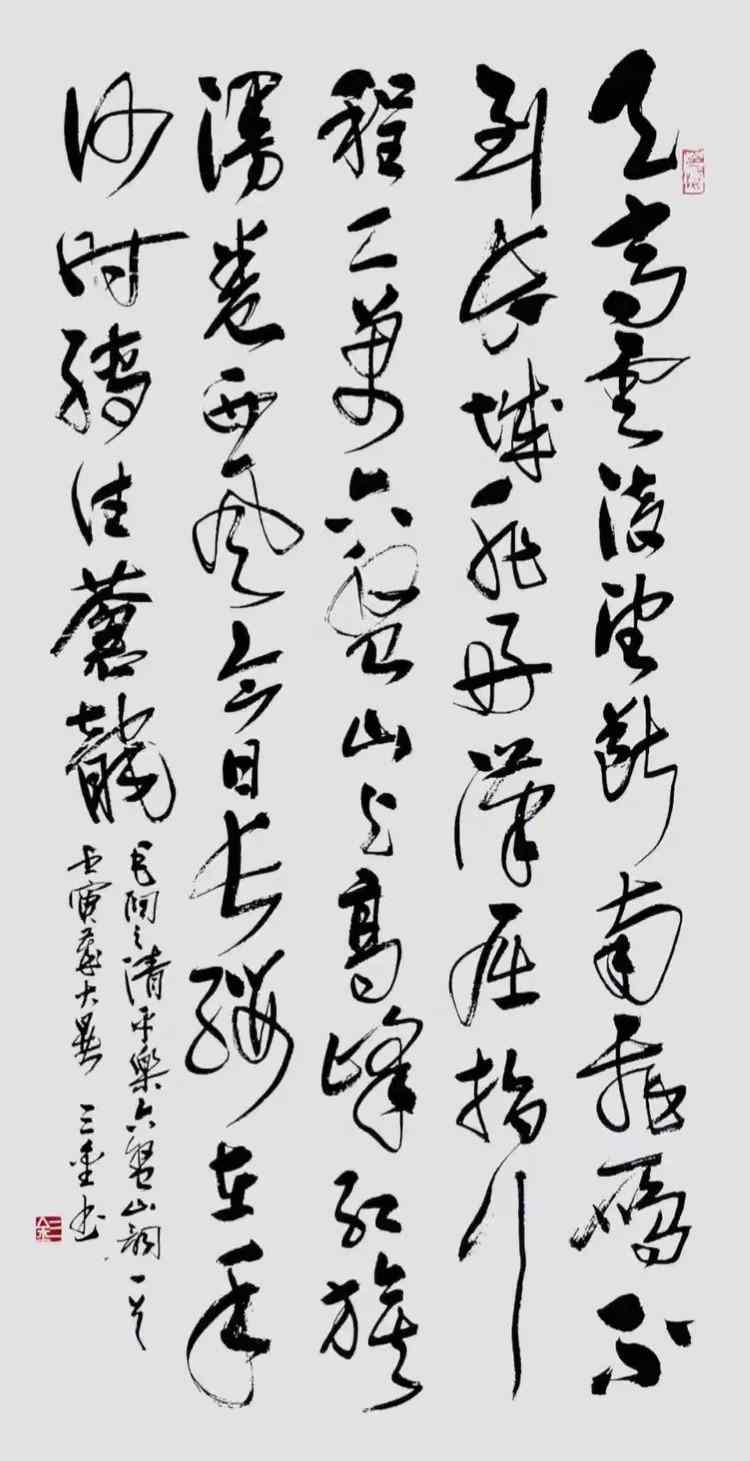 天高雲淡望斷南飛雁不
到長城非好漢屈指行
程二萬六盤山上高峰紅旗
漫卷西風今日長纓在手
何時縛住蒼龍
毛潤之清平樂六盤山詞一首
壬寅大暑 三金书
三金